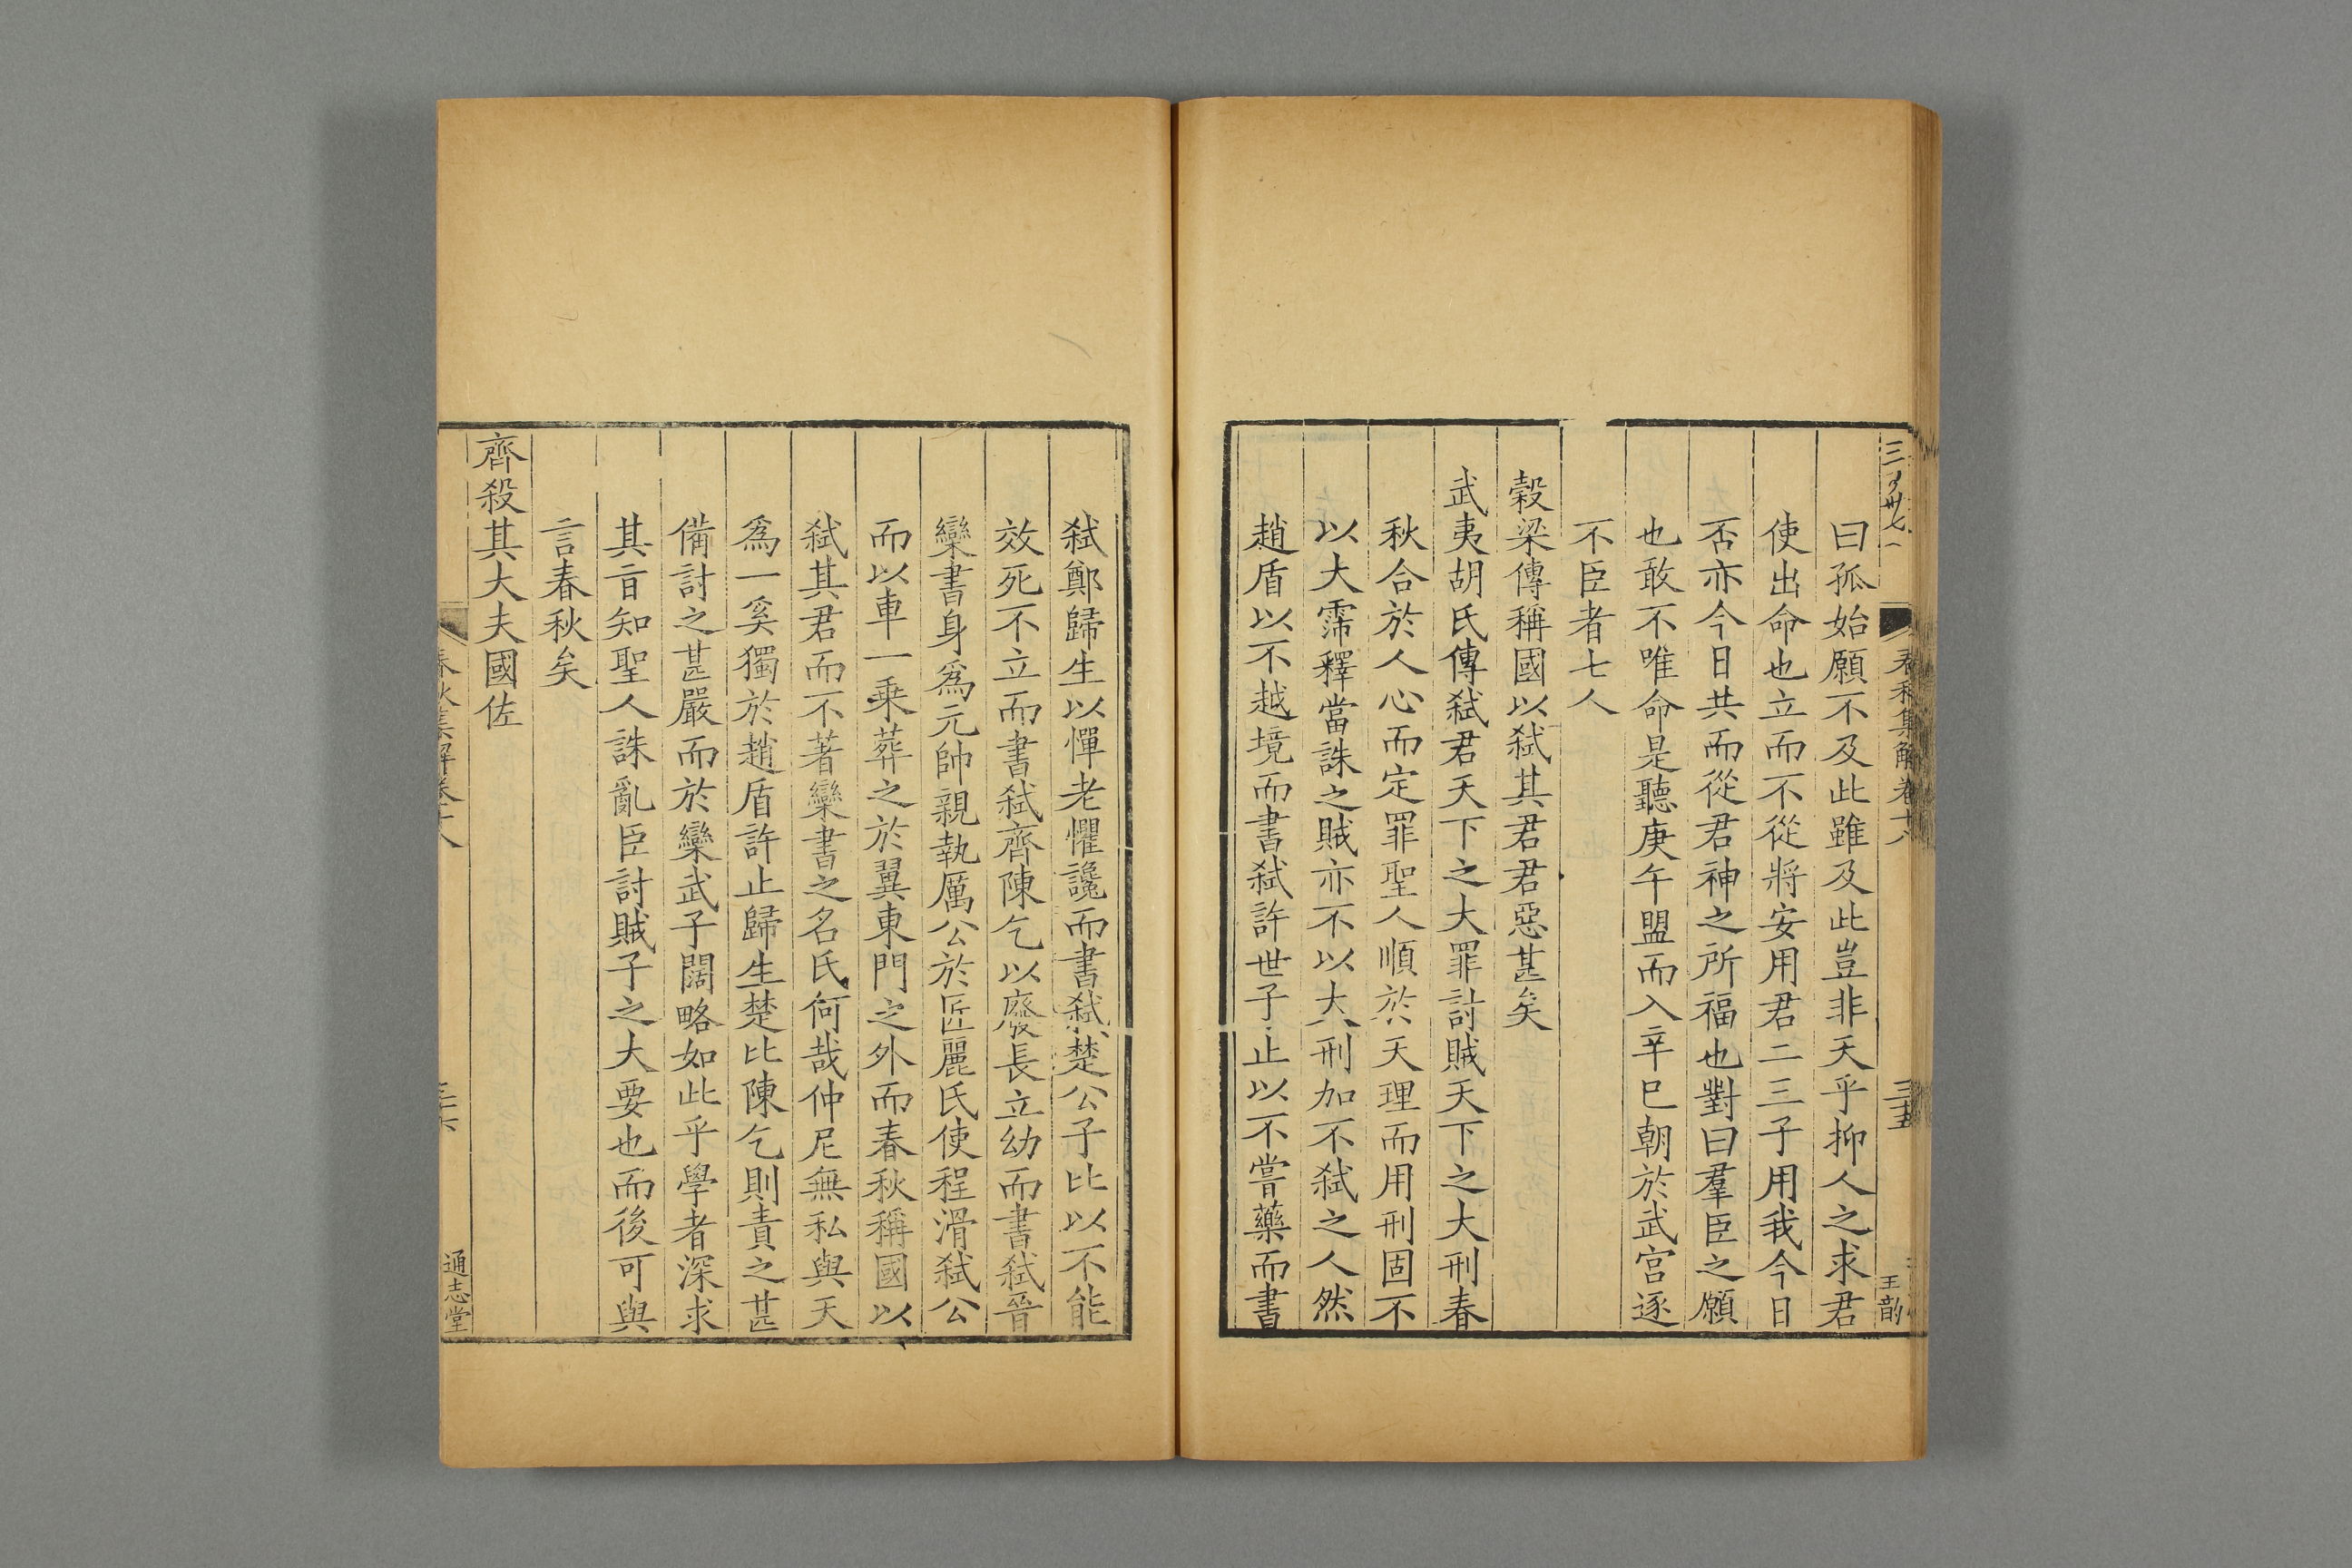 春秋集解卷十八
三五
曰孤始願不及此雖及此豈非天乎抑人之求君
使出命也立而不從將安用君二三子用我今日
否亦今日共而從君神之所福也對曰羣臣之願
也敢不唯命是聽庚午盟而入辛巳朝於武宮逐
不臣者七人
穀梁傳稱國以弑其君君惡甚矣
武夷胡氏傳弑君天下之大罪討賊天下之大刑春
秋合於人心而定罪聖人順於天理而用刑固不
以大霈釋當誅之賊亦不以大刑加不弑之人然
趙盾以不越境而書弑許世子止以不嘗藥而書
弑鄭歸生以憚老懼讒而書弑楚公子比以不能
效死不立而書弑齊陳乞以廢長立幼而書弑晉
欒書身爲元帥親執厲公於匠麗氏使程滑弑公
而以車一乗葬之於翼東門之外而春秋稱國以
弑其君而不著欒書之名氏何哉仲尼無私與天
爲一奚獨於趙盾許止歸生楚比陳乞則責之甚
備討之甚嚴而於欒武子闊略如此乎學者深求
其旨知聖人誅亂臣討賊子之大要也而後可與
言春秋矣
齊殺其大夫國佐
春秋集解卷十八
通志堂